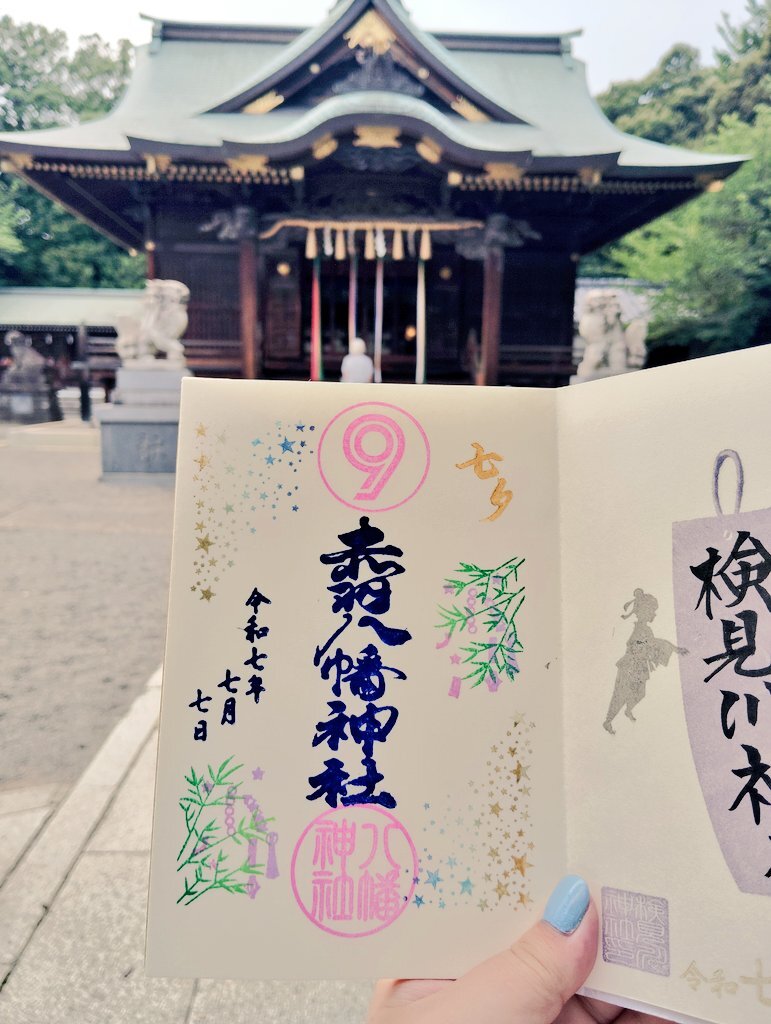 9
七夕
赤羽八幡神社
令和七年
七月
七日
八幡
神社
検見川神社
検見川
神社
令和七